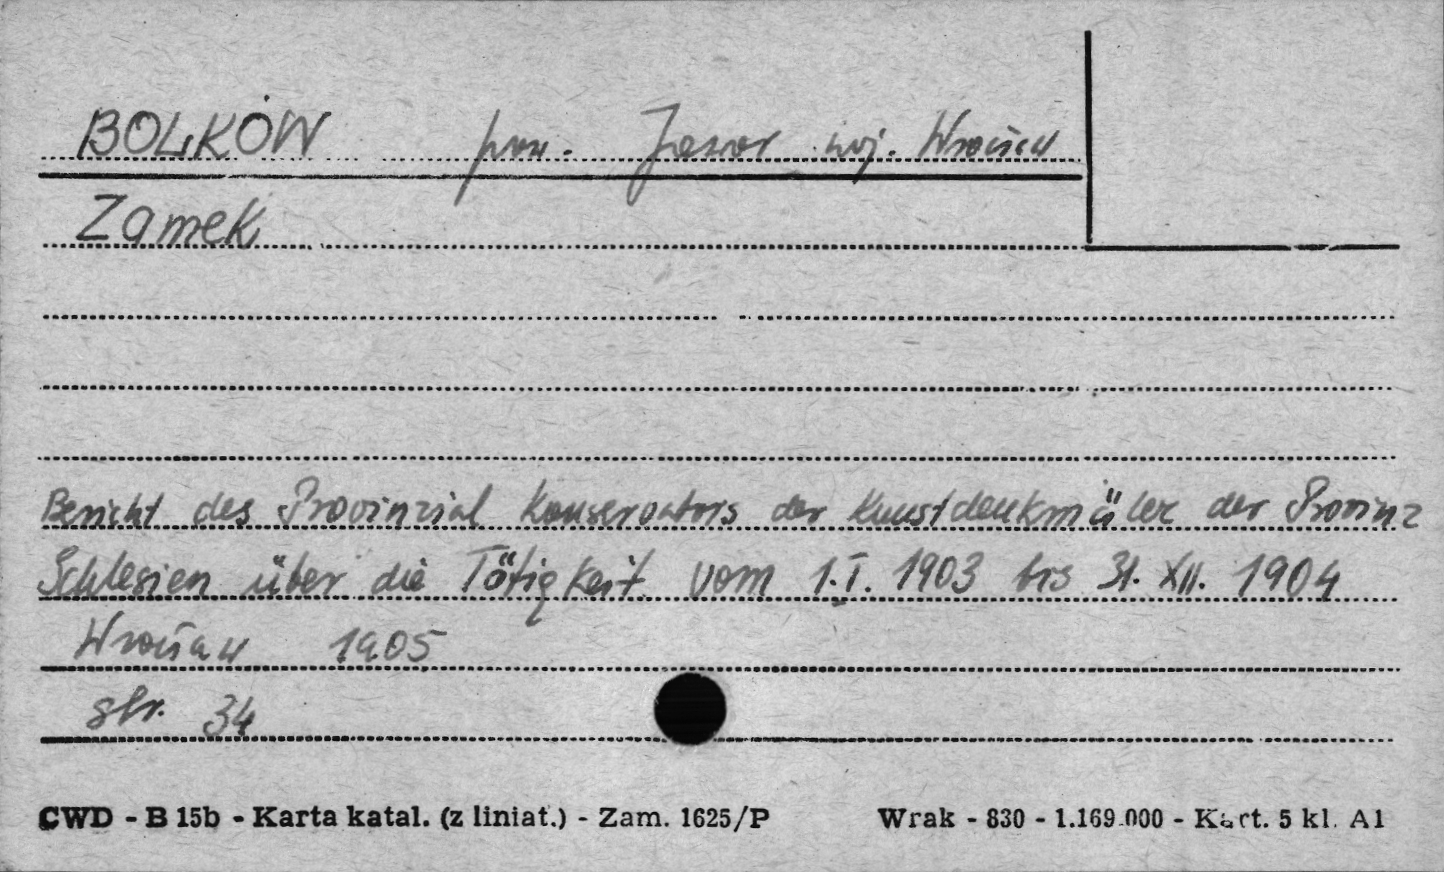 BOLKÓW pow. Jawor woj. Wrocław
Zamek
Bericht des Provinzial Konservators der Kunstdenkmäler der Provinz
Schlesien über die Tätigkeit vom 1.I. 1903 bis 31. XII. 1904
Wrocław 1905
str. 34
CWD - B 15b - Karta katal. (z liniat.) - Zam. 1625/P Wrak - 830 - 1.169.000 - Kart. 5 kl. A1